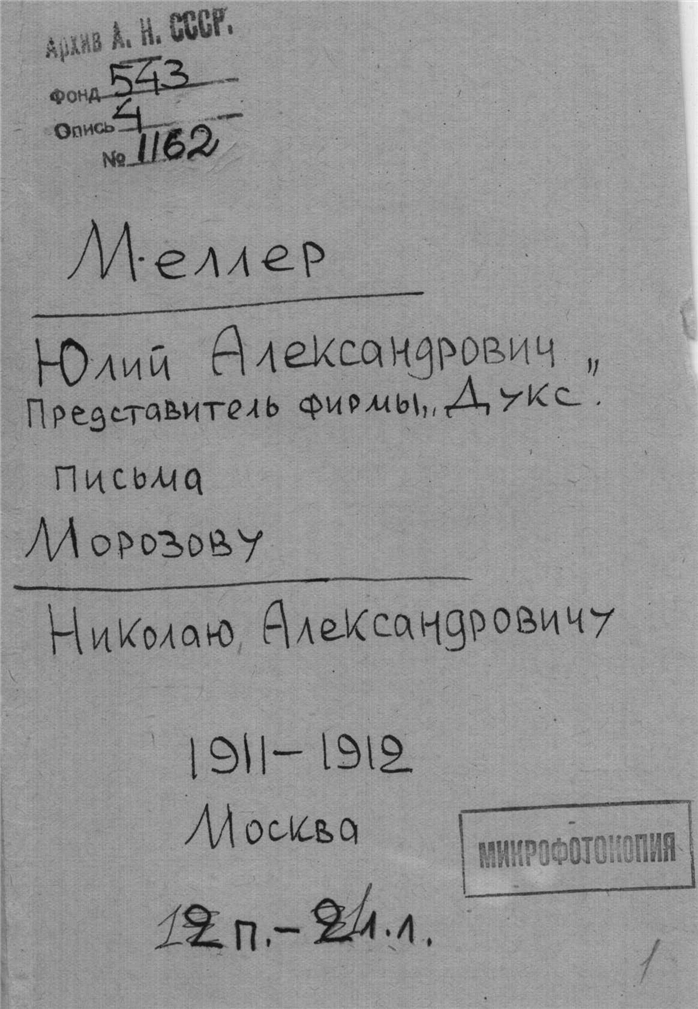 Архив А. Н. СССР.
Фонд 543
Опись 4
№ 1162
Меллер
Юлий Александрович
Представитель фирмы „Дукс".
письма
Морозову
Николаю Александровичу
1911–1912
Москва
МИКРОФОТОКОПИЯ
12 п. – 21 л.л.
1